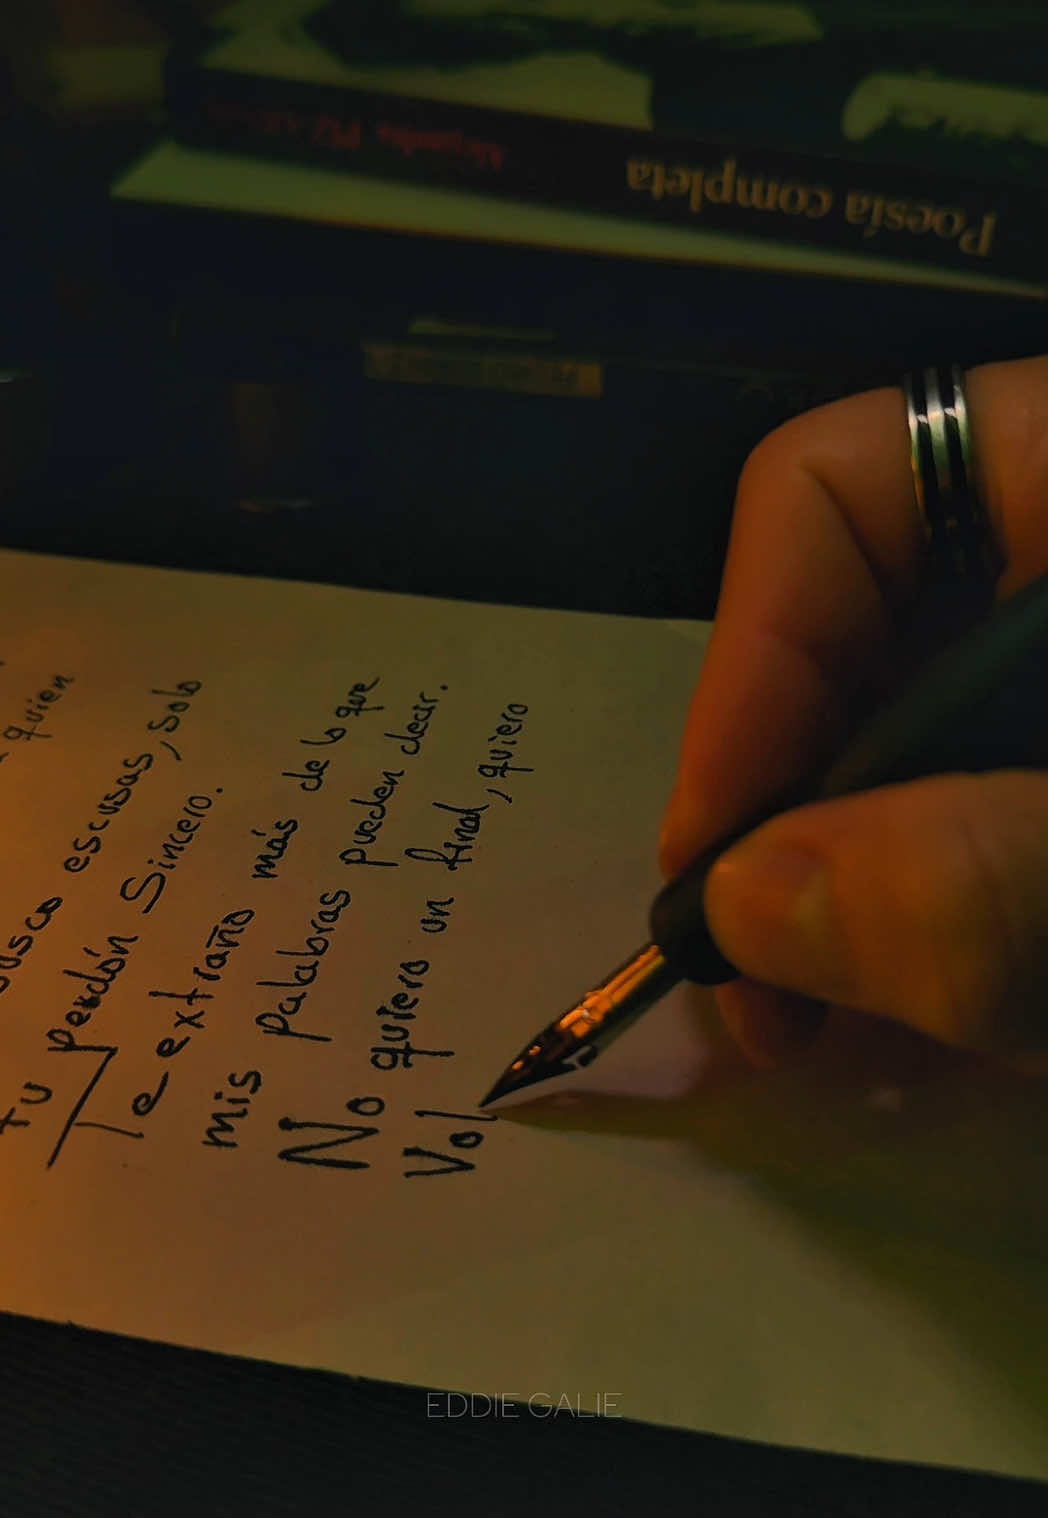 quien
busco escusas, solo
tu perdón Sincero.
Te extraño más de lo que
mis palabras pueden decir.
No quiero un final, quiero
Vol
Poesía completa
Alejandra
EDDIE GALIE